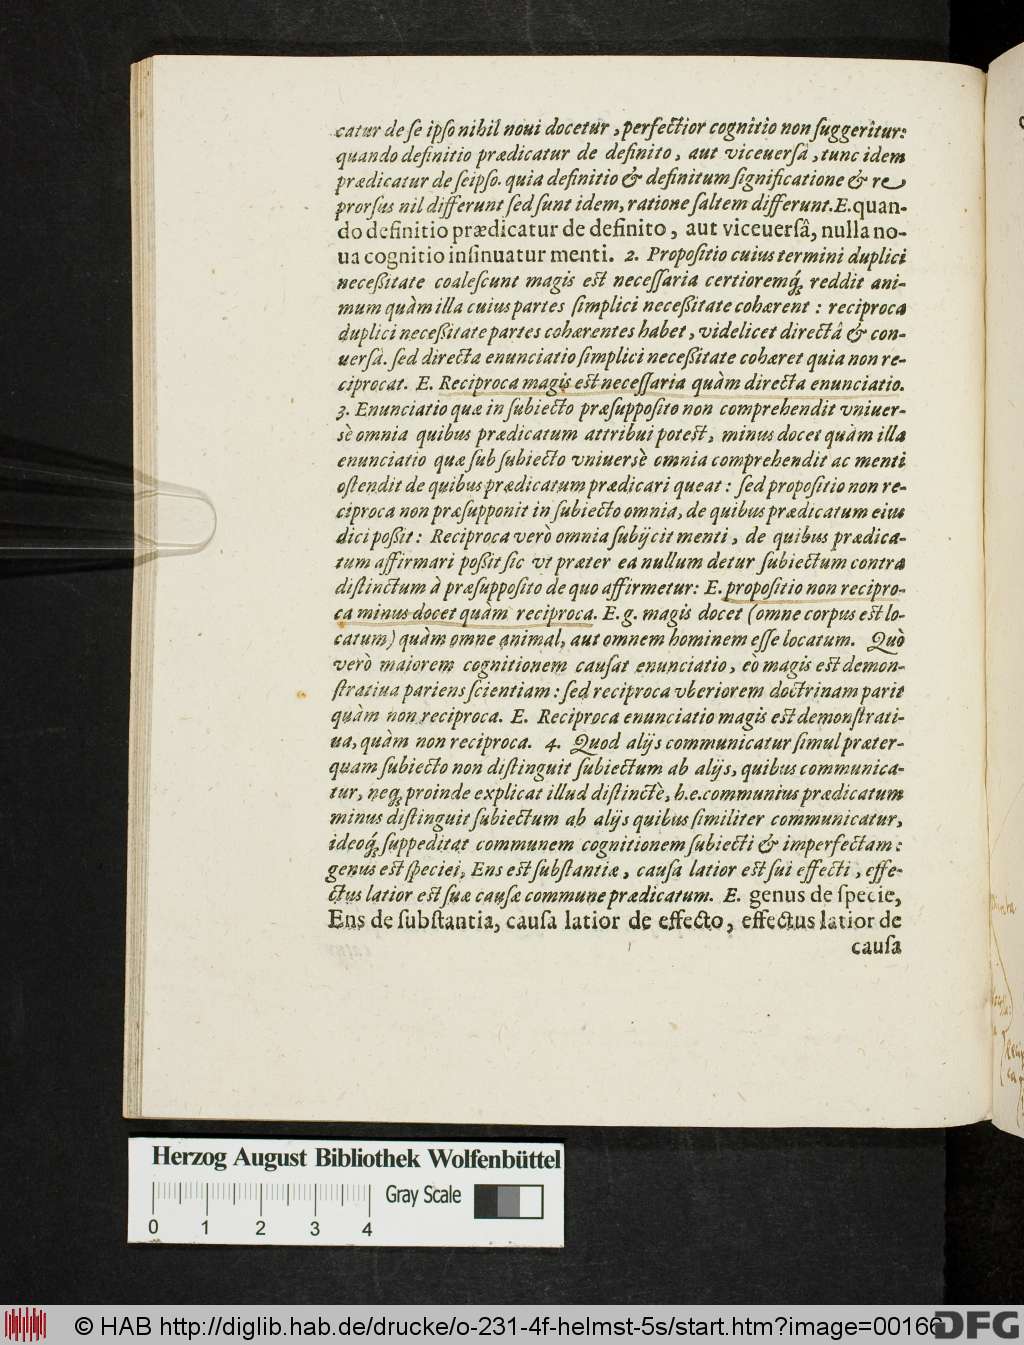 catur de se ipso nihil noui docetur, perfectior cognitio non suggeritur:
quando definitio prædicatur de definito, aut viceuersâ, tunc idem
prædicatur de seipso. quia definitio & definitum significatione & re
prorsus nil differunt sed sunt idem, ratione saltem differunt. E. quan-
do definitio prædicatur de definito, aut viceuersâ, nulla no-
ua cognitio insinuatur menti. 2. Propositio cuius termini duplici
necessitate coalescunt magis est necessaria certioremq́; reddit ani-
mum quàm illa cuius partes simplici necessitate cohærent : reciproca
duplici necessitate partes cohærentes habet, videlicet directâ & con-
uersâ. sed directa enunciatio simplici necessitate cohæret quia non re-
ciprocat. E. Reciproca magis est necessaria quàm directa enunciatio.
3. Enunciatio quæ in subiecto præsupposito non comprehendit vniuer-
sè omnia quibus prædicatum attribui potest, minus docet quàm illa
enunciatio quæ sub subiecto vniuersè omnia comprehendit ac menti
ostendit de quibus prædicatum prædicari queat : sed propositio non re-
ciproca non præsupponit in subiecto omnia, de quibus prædicatum eius
dici possit : Reciproca verò omnia subijcit menti, de quibus prædica-
tum affirmari possit sic vt præter ea nullum detur subiectum contra
distinctum à præsupposito de quo affirmetur: E. propositio non recipro-
ca minus docet quàm reciproca. E. g. magis docet (omne corpus est lo-
catum) quàm omne animal, aut omnem hominem esse locatum. Quò
verò maiorem cognitionem causat enunciatio, eò magis est demon-
stratiua pariens scientiam : sed reciproca vberiorem doctrinam parit
quàm non reciproca. E. Reciproca enunciatio magis est demonstrati-
ua, quàm non reciproca. 4. Quod alijs communicatur simul præter-
quam subiecto non distinguit subiectum ab alijs, quibus communica-
tur, neq; proinde explicat illud distinctè, h.e. communius prædicatum
minus distinguit subiectum ab alijs quibus similiter communicatur,
ideoq́; suppeditat communem cognitionem subiecti & imperfectam :
genus est speciei, Ens est substantiæ, causa latior est sui effecti, effe-
ctus latior est suæ causæ commune prædicatum. E. genus de specie,
Ens de substantia, causa latior de effecto, effectus latior de
causa
Herzog August Bibliothek Wolfenbüttel
Gray Scale
0 1 2 3 4
© HAB http://diglib.hab.de/drucke/o-231-4f-helmst-5s/start.htm?image=00166
DFG